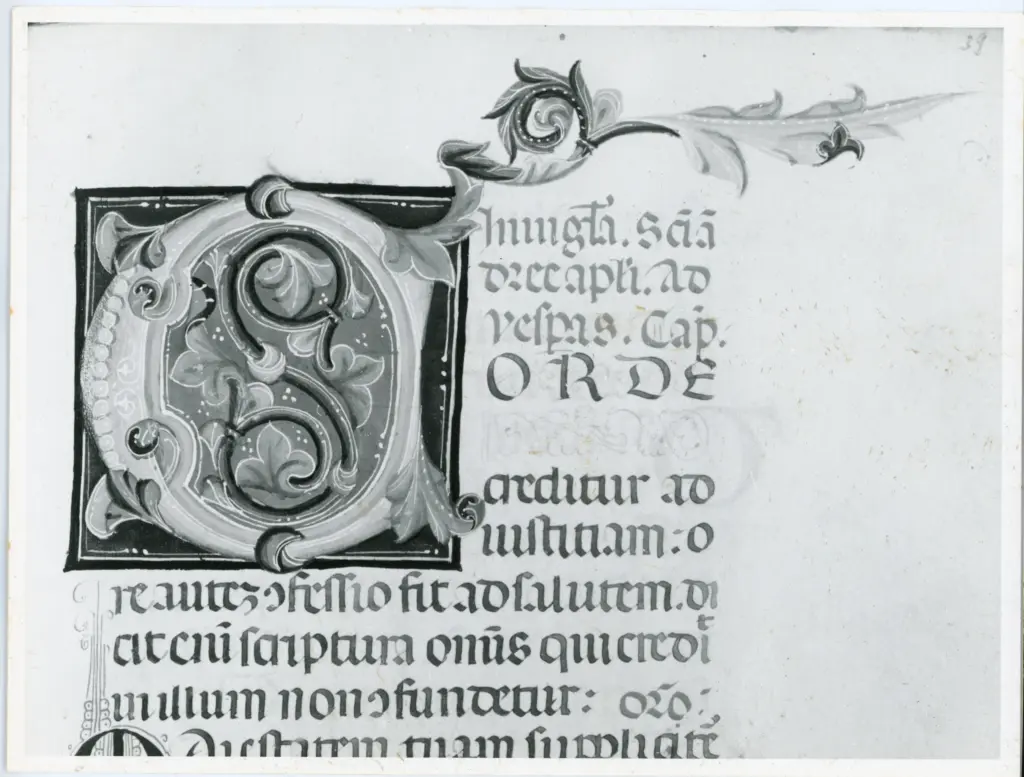 39
In uigła. Scī ā
dree apłi. Ad
vesp̄as. Cap̄.
CORDE
creditur ad
iustitiam: o
re autez ↄfessio fit ad salutem. di
cit eni᷑ scriptura om̄is qui credit
in illum non ↄfundetur: or̄o:
Maiestatem tuam supplicite